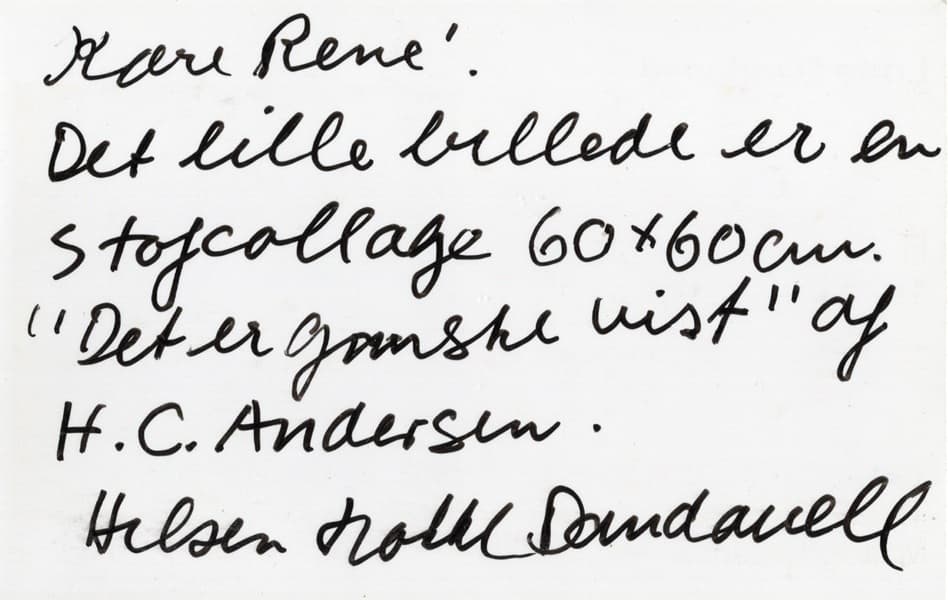 Kære René!
Det lille billede er en
stofcollage 60x60cm.
"Det er ganske vist" af
H.C. Andersen.
Hilsen